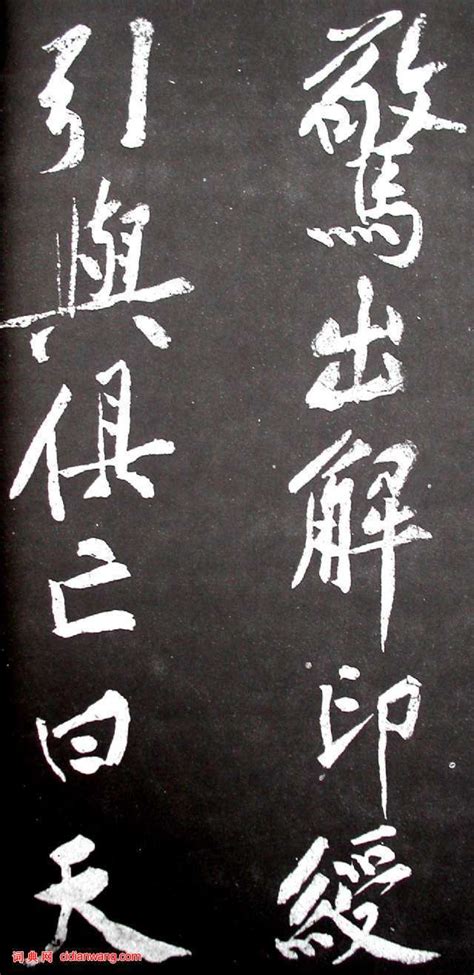 驚出解印綬
引與俱亡曰天
词典网 cidianwang.com